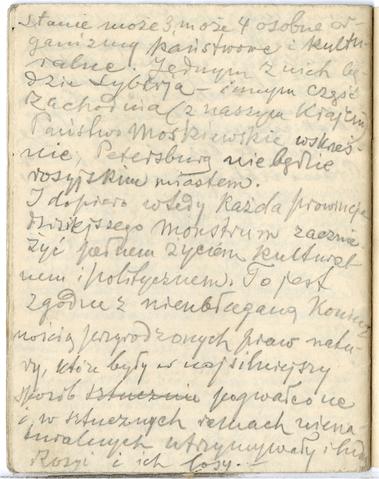 stanie może 3, może 4 osobne or-
ganizmy państwowe i kultu-
ralne. Jednym z nich bę-
dzie Syberja – innym część
zachodnia (z naszym Krajem)
Państwo Moskiewskie wskrześ-
nie, Petersburg nie będzie
rosyjskim miastem.
I dopiero wtedy każda prowincja
dzisiejszego monstrum zacznie
żyć pełnem życiem kultural-
nem i politycznem. To jest
zgodne z nieubłaganą koniecz-
nością przyrodzonych praw natu-
ry, które były w najsilniejszy
sposób sztucznie pogwałcone
i w sztucznych ramach niena-
turalnych utrzymywały i ludy
Rosyi i ich losy. –